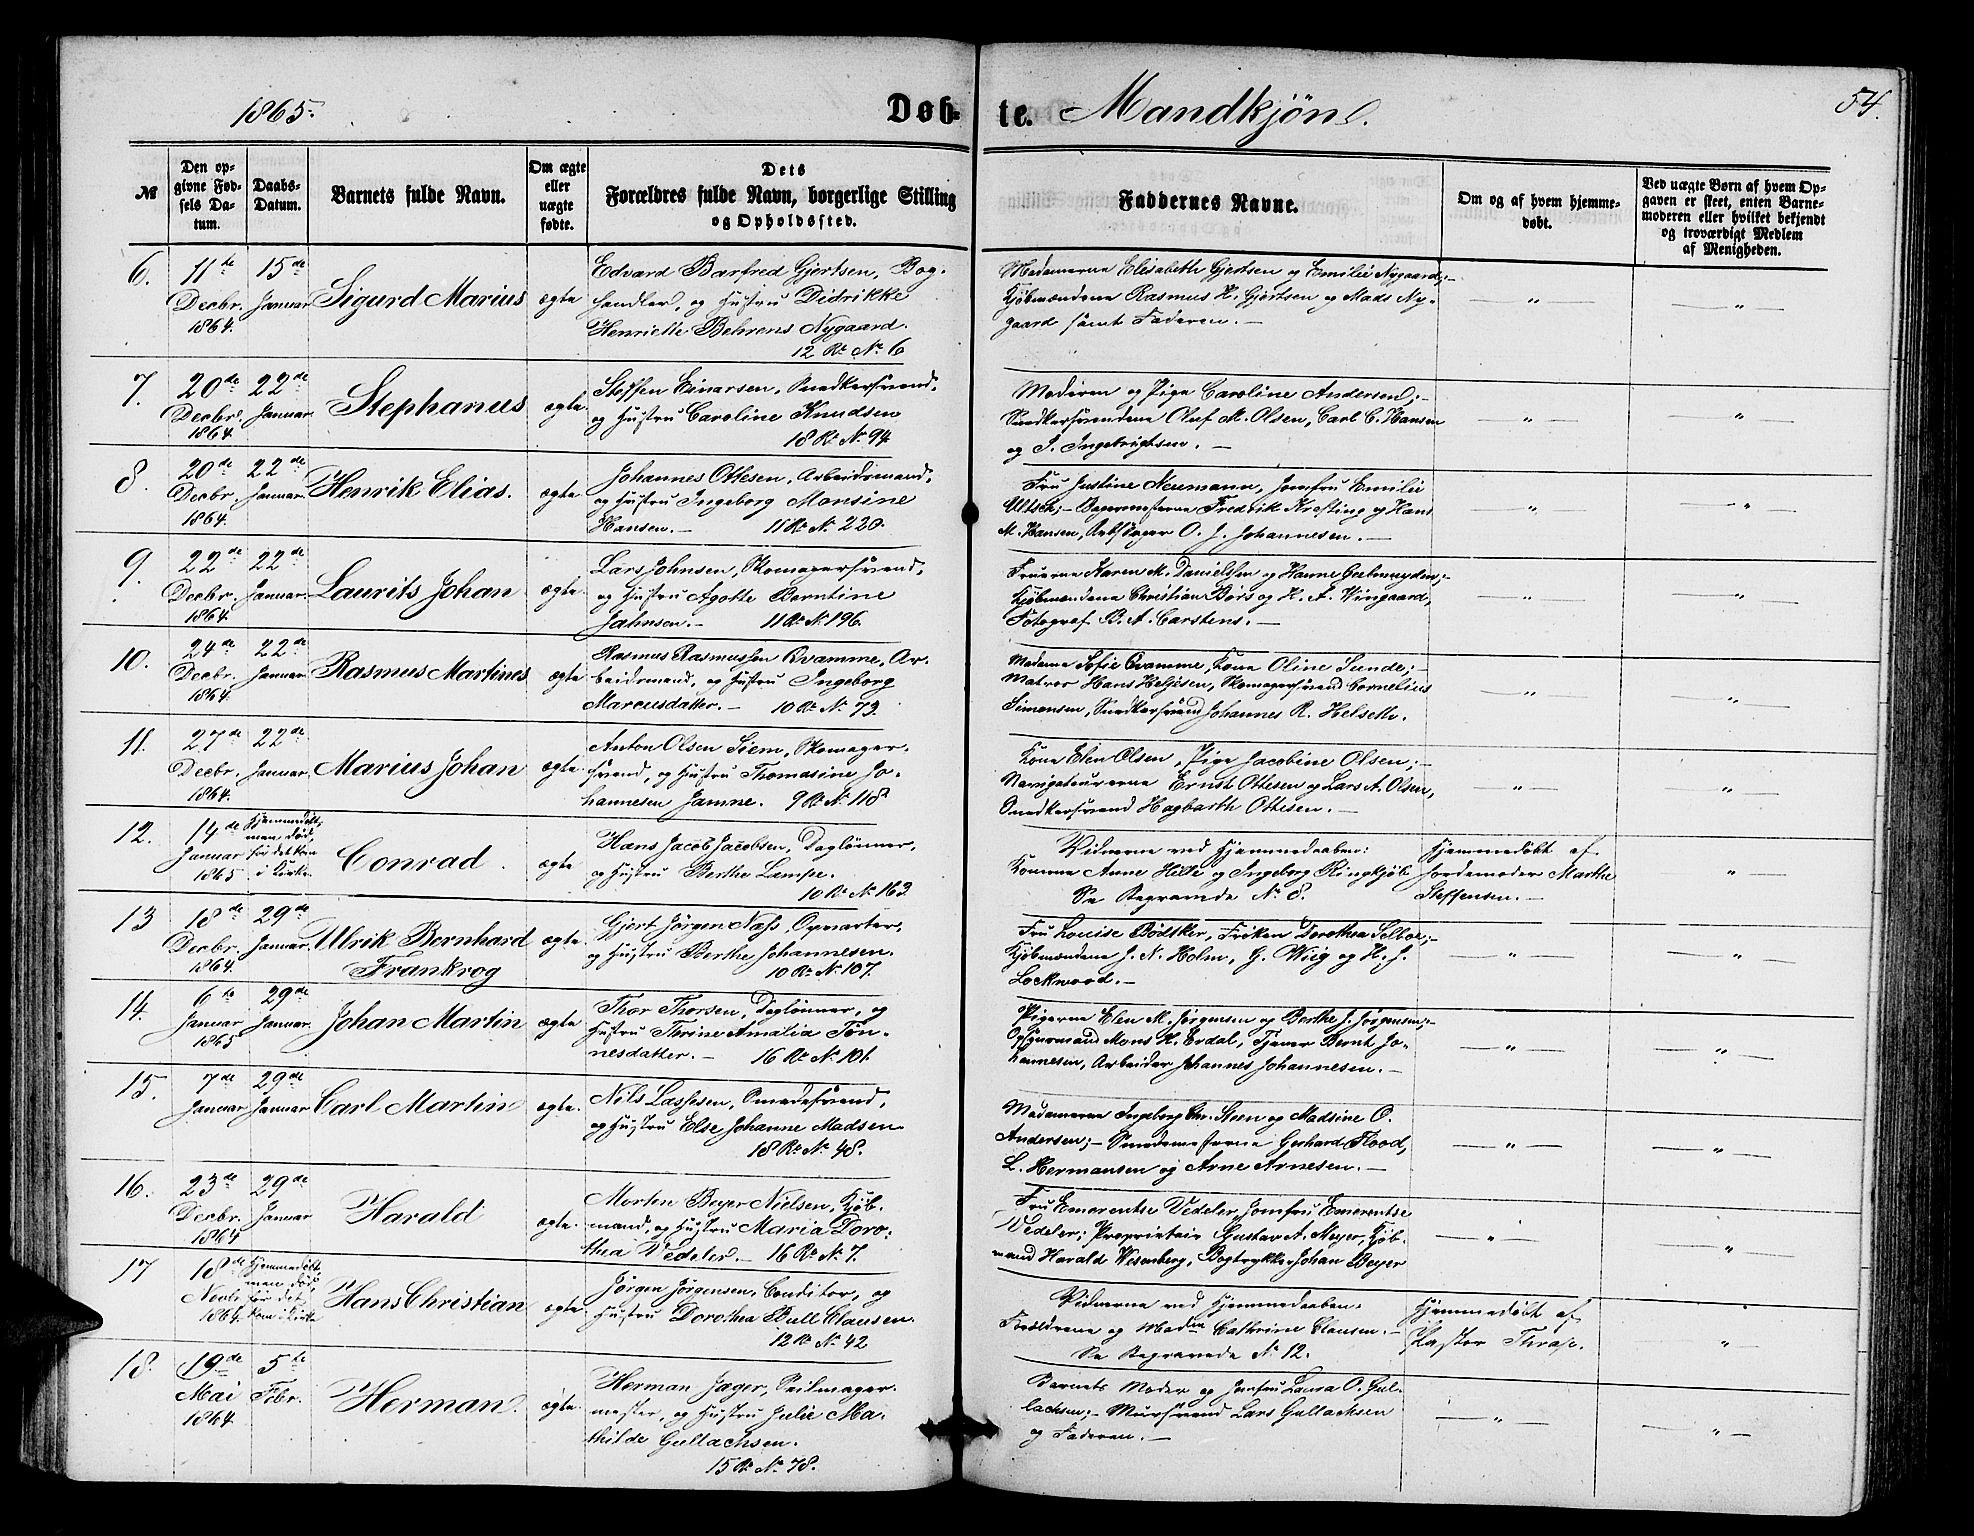 1865.
Døb-
te. Mandkjön.
54.
№
Den op-
givne Fød-
sels Da-
tum.
Daabs-
Datum.
Barnets fulde Navn.
Om ægte
eller
uægte
fødte.
Dets
Forældres fulde Navn, borgerlige Stilling
og Opholdssted.
Faddernes Navne.
Om og af hvem hjemme-
døbt.
Ved uægte Børn af hvem Op-
gaven er skeet, enten Barne-
moderen eller hvilket bekjendt
og troværdigt Medlem
af Menigheden.
6.
11te
Decbr.
1864.
15de
Januar
Sigurd Marius
ægte
Edvard Barfred Gjertsen, Bog-
handler, og Hustru Didrikke
Henriette Behrens Nygaard.
12 Rd. No. 6
Madamerne Elisabeth Gjertsen og Emilie Nygaard;-
Kjöbmændene Rasmus H. Gjertsen og Mads Ny-
gaard samt Faderen. -
7.
20de
Decbr.
1864.
22de
Januar
Stephanus
ægte.
Steffen Einarsen, Snedkersvend,
og Hustru Caroline Knudsen
18 Rd. No. 94
Moderen og Pige Caroline Andersen;-
Snedkersvendene Oluf M. Olsen, Carl C. Hansen
og I. Ingebrigtsen. -
8.
20de
Decbr.
1864.
22de
Januar.
Henrik Elias.
ægte.
Johannes Ottesen, Arbeidsmand,
og Hustru Ingeborg Monsine
Hansen. - 11 Rd. No. 220.
Fru Justine Neumann, Jomfru Emilie
Bagermesterne Fredrik Kresting og Hans
M. Hansen, Rebslager O. J. Johannesen. -
9.
22de
Decbr.
1864.
22de
Januar.
Laurits Johan
ægte.
Lars Johnsen, Skomagersvend,
og Hustru Agotte Berntine
Johnsen. - 11 Rd. No. 196.
Fruerne Karen M. Danielssen og Hanne Geelmuyden;-
Kjöbmændene Christian Børs og H. A. Wingaard,
Fotograf B. A. Carstens. -
10.
24de
Decbr.
1864.
22de
Januar
Rasmus Martines
ægte
Rasmus Rasmussen Qvamme, Ar-
beidsmand, og Hustru Ingeborg
Marcusdatter. - 10 Rd. No. 73.
Madame Sofie Qvamme, Kone Oline Sunde;-
Matros Hans Heljesen, Skomagersvend Cornelius
Simonsen, Snedkersvend Johannes R. Helseth.
11.
27de
Decbr.
1864.
22de
Januar.
Marius Johan
ægte.
Anton Olsen Siem, Skomager-
svend, og Hustru Thomasine Jo-
hannesen Jamne. 9 Rd. No. 118
Kone Elen Olsen, Pige Jacobine Olsen;-
Navigateurerne Ernst Ottesen og Lars A. Olsen,
Snedkersvend Hagbarth Ottesen. -
12.
14de
Januar
1865
Hjemmedöbt,
men död,
før det kom
i Kirke.
Conrad.
ægte
Hans Jacob Jacobsen, Daglønner,
og Hustru Berthe Lampe.
10 Rd. No. 163.
Vidnerne ved Hjemmedaaben:
Konerne Anne Hille og Ingeborg Ringkjöb.
Se Begravede No. 8.
Hjemmedöbt af
Jordemoder Marthe
Steffensen. -
13
18de
Decbr.
1864.
29de
Januar
Ulrik Bernhard
Frankrog
ægte.
Gjert Jörgen Næss, Opvarter,
og Hustru Berthe Johannesen.
10 Rd. No. 107.
Fru Louise Bødtker, Frøken Dorothea Selboe;-
Kjöbmændene J. N. Holm, G. Wiig og H. J.
Lockwood. -
14.
6te
Januar
1865
29de
Januar.
Johan Martin
ægte
Thor Thorsen, Daglønner, og
Hustru Thrine Amalia Tön-
nesdatter. - 16 Rd. No. 101.
Pigerne Elen M. Jørgensen og Berthe J. Jørgensen;-
Opsynsmand Mons H. Erdal, Tjener Bernt Jo-
hannesen, Arbeider Johannes Johannesen. -
15.
7de
Januar
29de
Januar
Carl Martin
ægte.
Nils Lassesen, Smedesvend,
og Hustru Else Johanne Madsen
18 Rd. No. 48.
Madamerne Ingeborg Chr. Steen og Madsine O.
Andersen;- Smedemesterne Gerhard Flood,
L. Hermansen og Arne Arnesen. -
16.
23de
Decbr.
1864
29de
Januar
Harald
ægte.
Morten Beyer Nielsen, Kjöb-
mand, og Hustru Maria Doro-
thea Vedeler. - 16 Rd. No. 7.
Fru Emerentse Vedeler, Jomfru Emerentse
Vedeler; Proprietair Gustav A. Meyer, Kjöb-
mand Harald Wesenberg, Bogtrykker Johan Beyer
17
18de
Novbr
1864.
Hjemmedöbt
men död
før det
kom i Kirke
Hans Christian
ægte.
Jørgen Jørgensen, Conditor, og
Hustru Dorothea Bull Clausen.
12 Rd. No. 42
Vidnerne ved Hjemmedaaben.
Forældrene og Madme Cathrine Clausen. -
Se Begravede No. 12.
Hjemmedöbt af
Pastor Thrap.
18.
19de
Mai
1864.
5te
Febr.
Herman.
ægte.
Herman Jæger, Seilmager-
mester, og Hustru Julie Ma-
thilde Gullachsen.
15 Rd. No. 78.
Barnets Moder og Jomfru Laura O. Gul-
lachsen;- Mursvend Lars Gullachsen
og Faderen. -